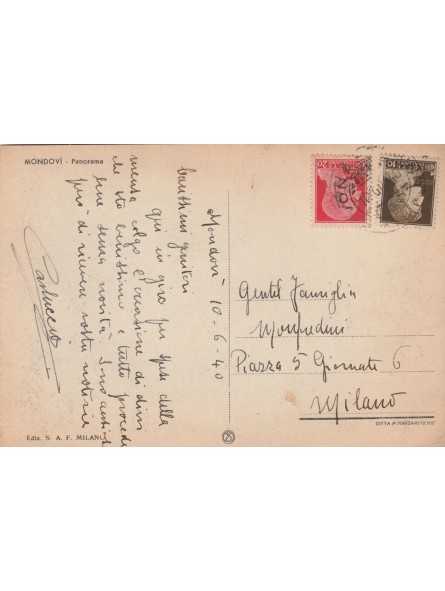 MONDOVÌ - Panorama
Mondovì 10-6-40
Carissimi genitori
qui in giro per spese della
mensa colgo l'occasione di dirvi
che sto benissimo e tutto procede
bene senza novità. Sono
però di ricevere vostre notizie
Carluccio
Gentil Famiglia
Piazza 5 Giornate 6
Milano
Ediz. S. A. F. MILANO